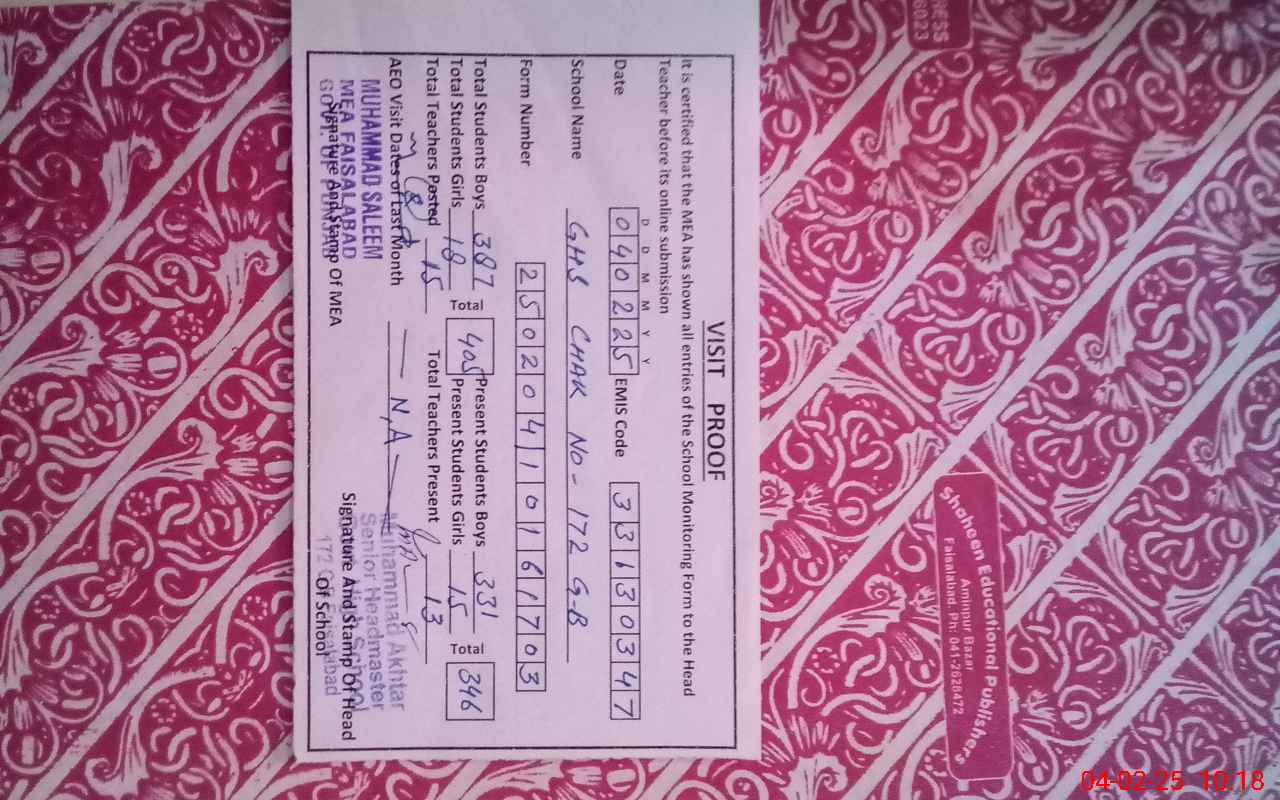 VISIT PROOF
It is certified that the MEA has shown all entries of the School Monitoring Form to the Head
Teacher before its online submission
D D M M Y Y
Date 040225 EMIS Code 33130347
School Name GHS CHAK NO- 172 G-B
Form Number 250204101661703
Total Students Boys 387 Total 405 Present Students Boys 331 Total 346
Total Students Girls 18 Present Students Girls 15
Total Teachers Posted 15 Total Teachers Present 13
AEO Visit Dates of Last Month — N,A —
MUHAMMAD SALEEM
MEA FAISALABAD
GOVT. OF PUNJAB
Signature And Stamp Of MEA
Muhammad Akhtar
Senior Headmaster
High School
172
Signature And Stamp Of Head
Of School
Shaheen Educational Publishers
Aminpur Bazar
Faisalabad. Ph: 041-2628472
04-02-25 10:18